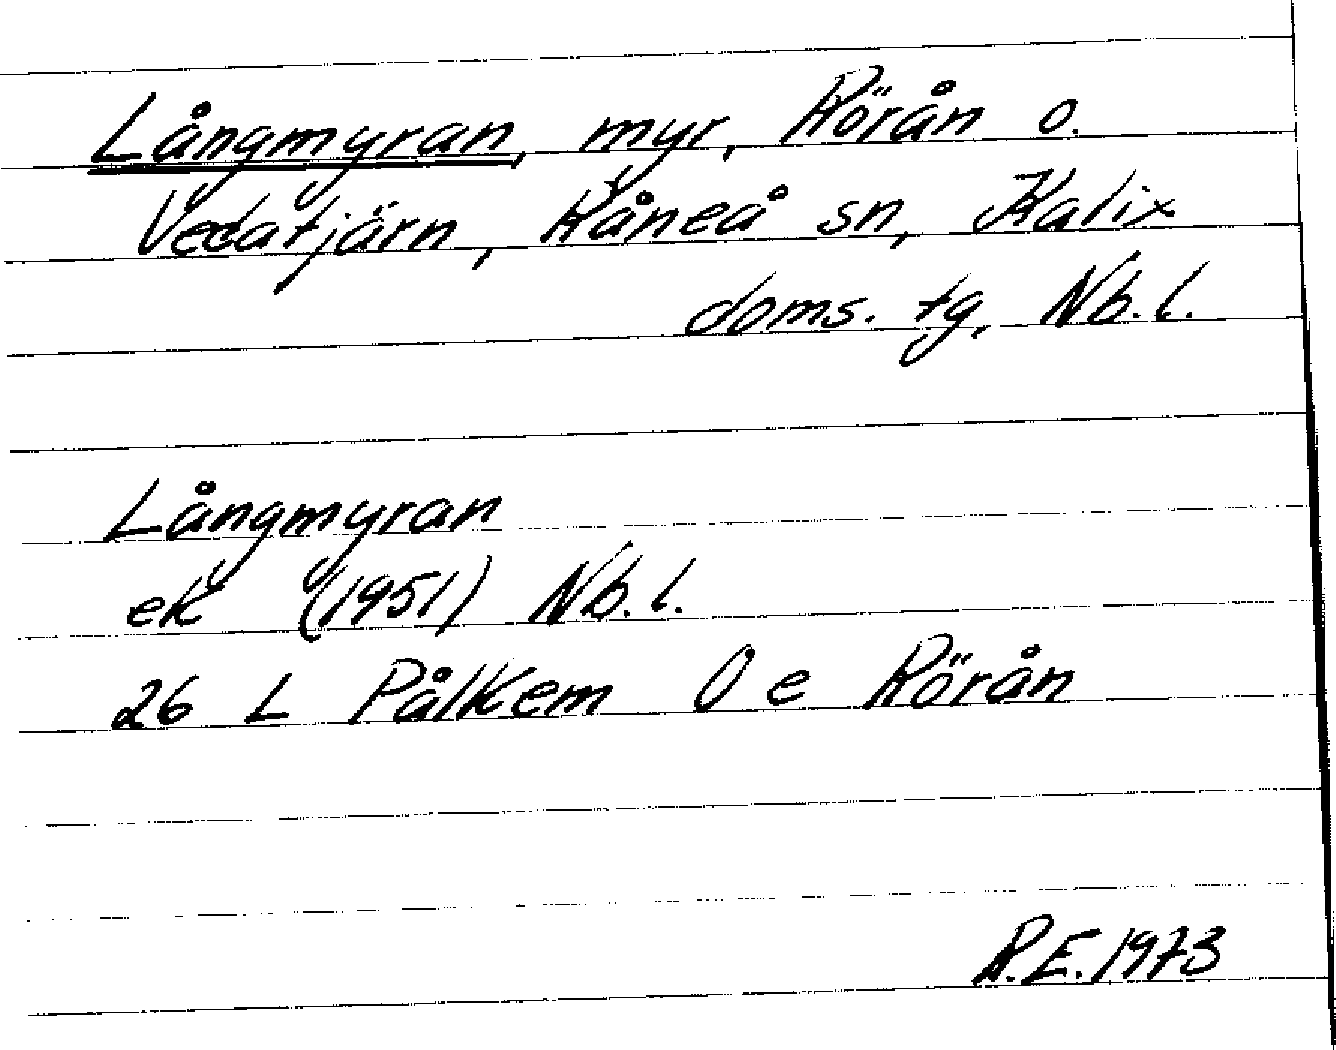 Långmyran, myr, Rörån o.
Vedatjärn, Råneå sn, Kalix
doms. tg, Nb. l.
Långmyran
ek (1951) Nb. l.
26 L Pålkem O e Rörån
R.E. 1973